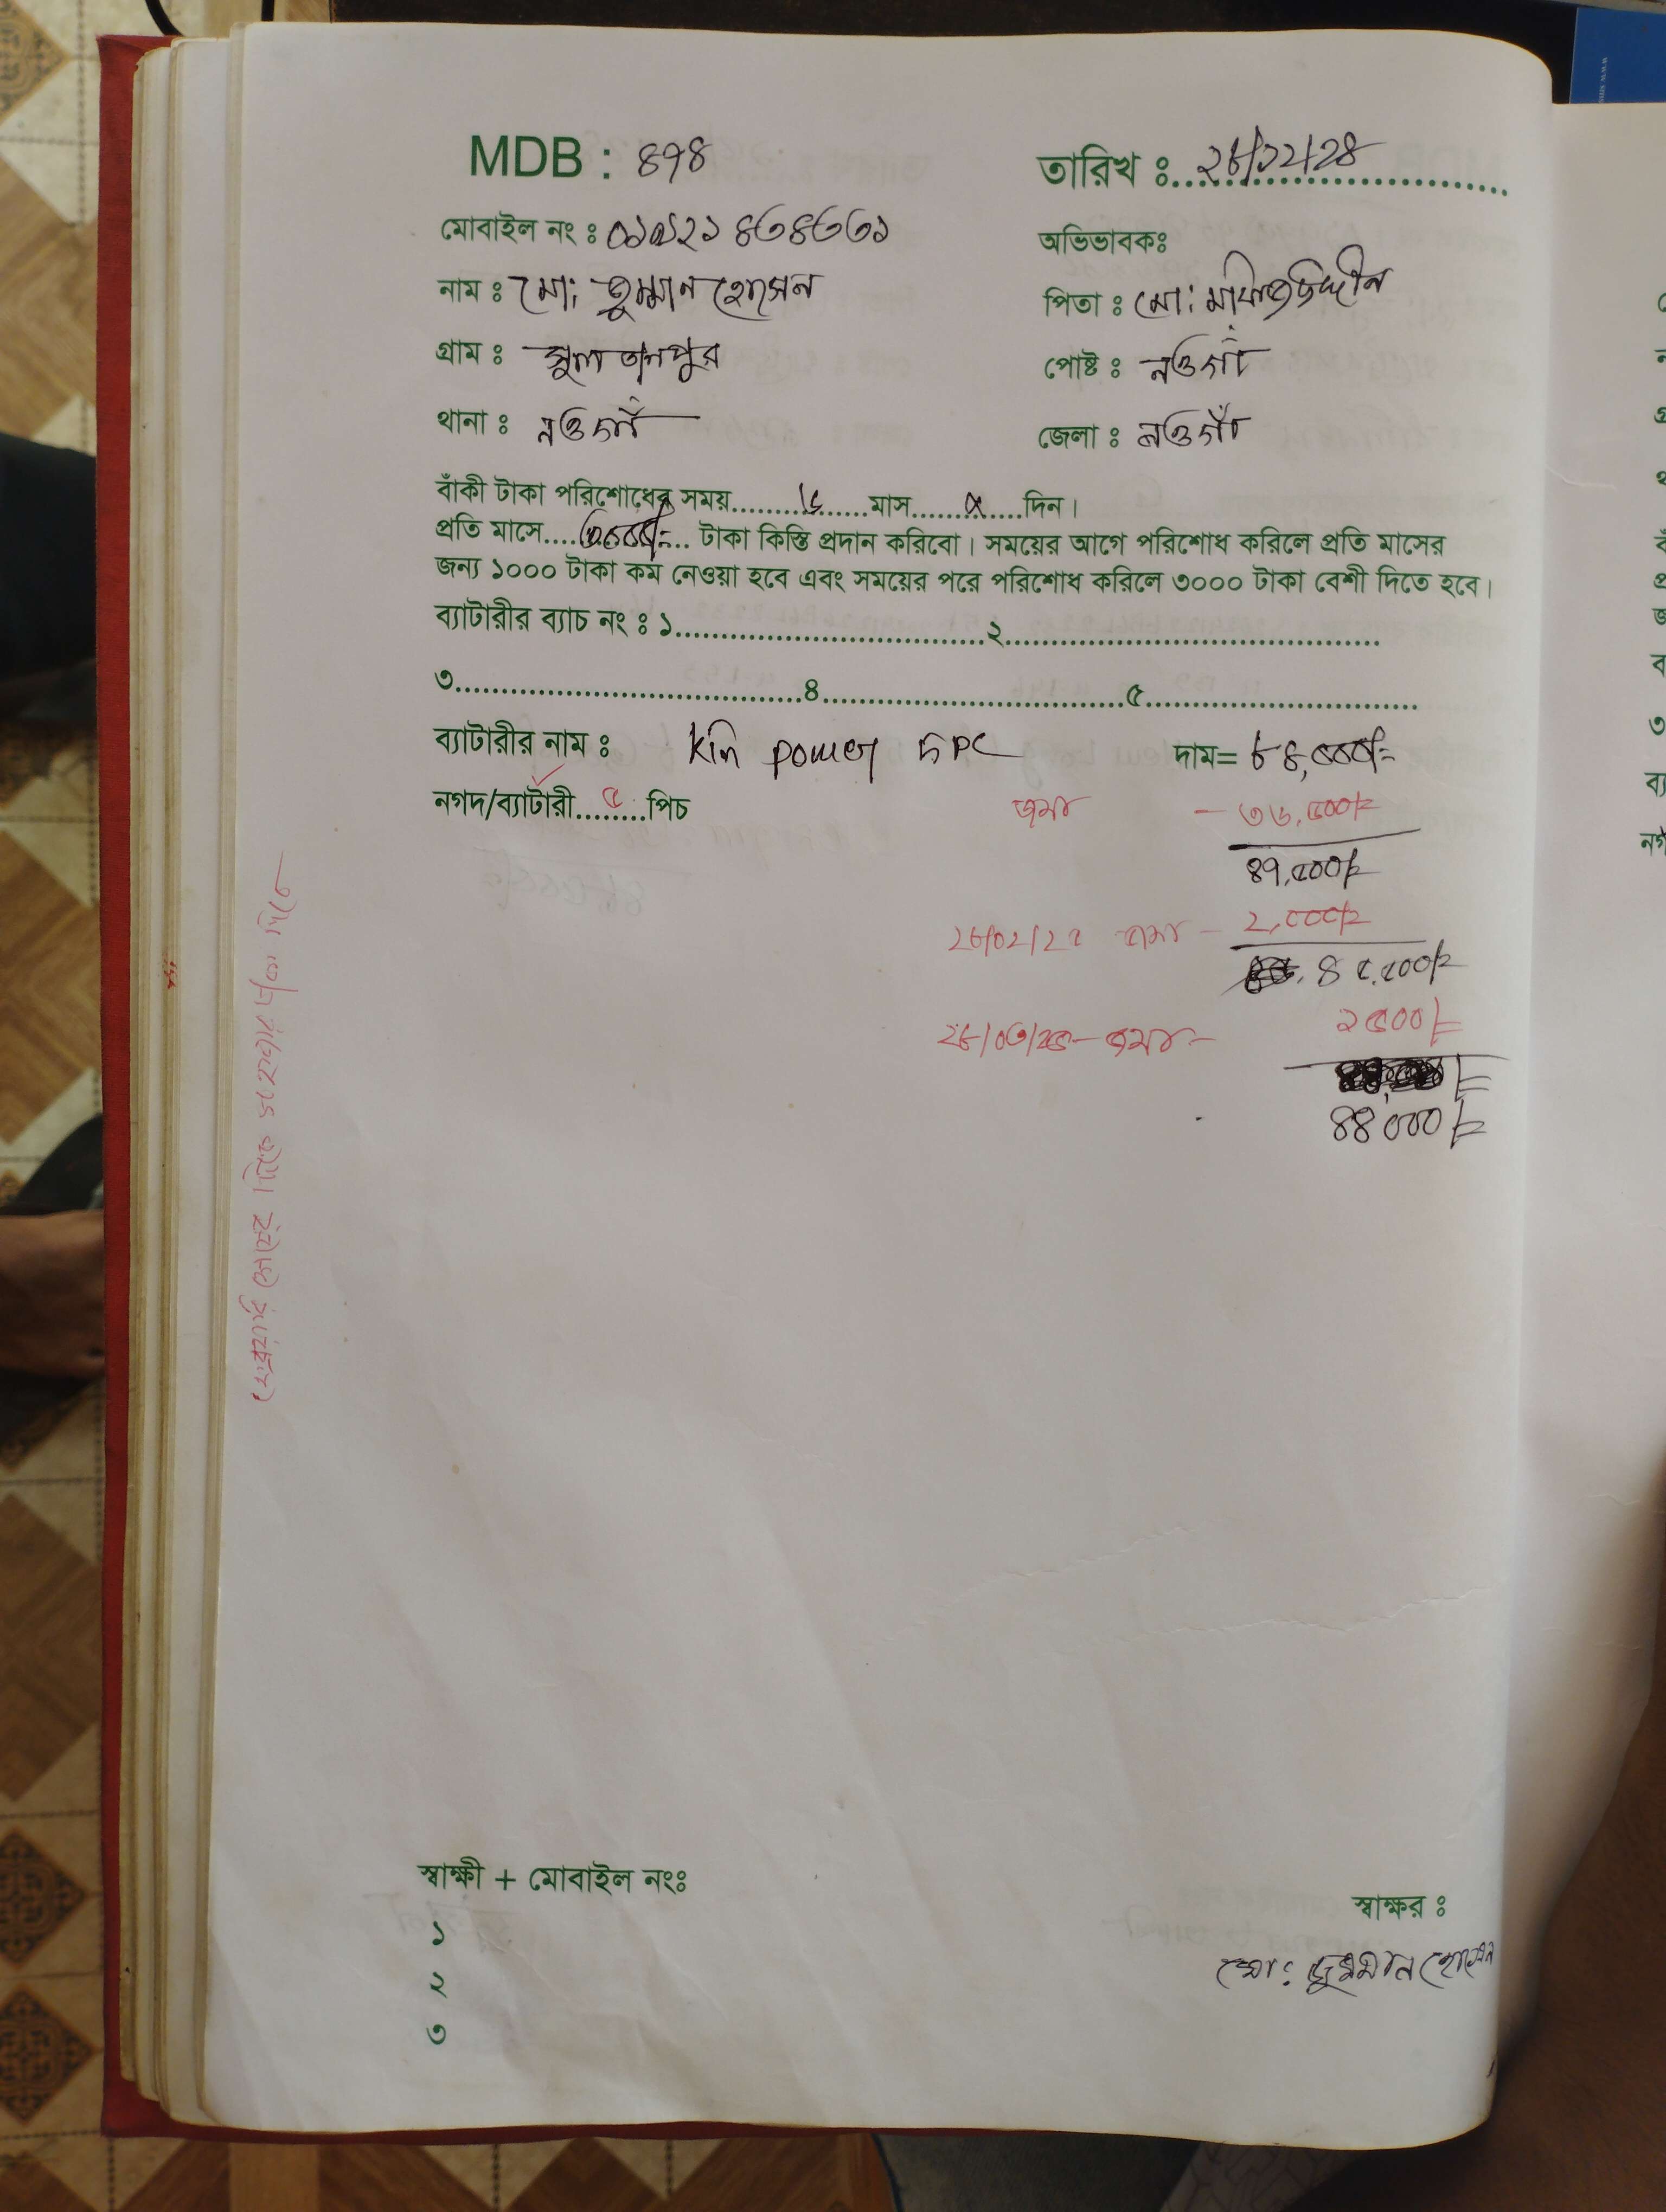 MDB : ৪৭৪
তারিখ ঃ ২৮/১২/২৪
মোবাইল নং ঃ
অভিভাবকঃ
নাম ঃ মো: জুম্মান হোসেন
পিতা ঃ মো:
গ্রাম ঃ সুলতানপুর
পোষ্ট ঃ নওগাঁ
থানা ঃ নওগাঁ
জেলা ঃ নওগাঁ
বাঁকী টাকা পরিশোধের সময়..............মাস.............দিন।
প্রতি মাসে.... টাকা কিস্তি প্রদান করিবো। সময়ের আগে পরিশোধ করিলে প্রতি মাসের
জন্য ১০০০ টাকা কম নেওয়া হবে এবং সময়ের পরে পরিশোধ করিলে ৩০০০ টাকা বেশী দিতে হবে।
ব্যাটারীর ব্যাচ নং ঃ ১....................................২............................................
৩.........................................৪....................................৫................................
ব্যাটারীর নাম ঃ Kin power ৫PC দাম= ৮৪,০০০/=
নগদ/ব্যাটারী....৫....পিচ জমা - ৩৬,৫০০/=
৪৭,৫০০/=
২৮/০২/২৫ জমা - ২,০০০/=
৪৫,৫০০/=
২৮/০৩/২৫ - জমা - ১৫০০/=
৪৪০০০/=
স্বাক্ষী + মোবাইল নংঃ
স্বাক্ষর ঃ
১
মো: জুম্মান হোসেন
২
৩